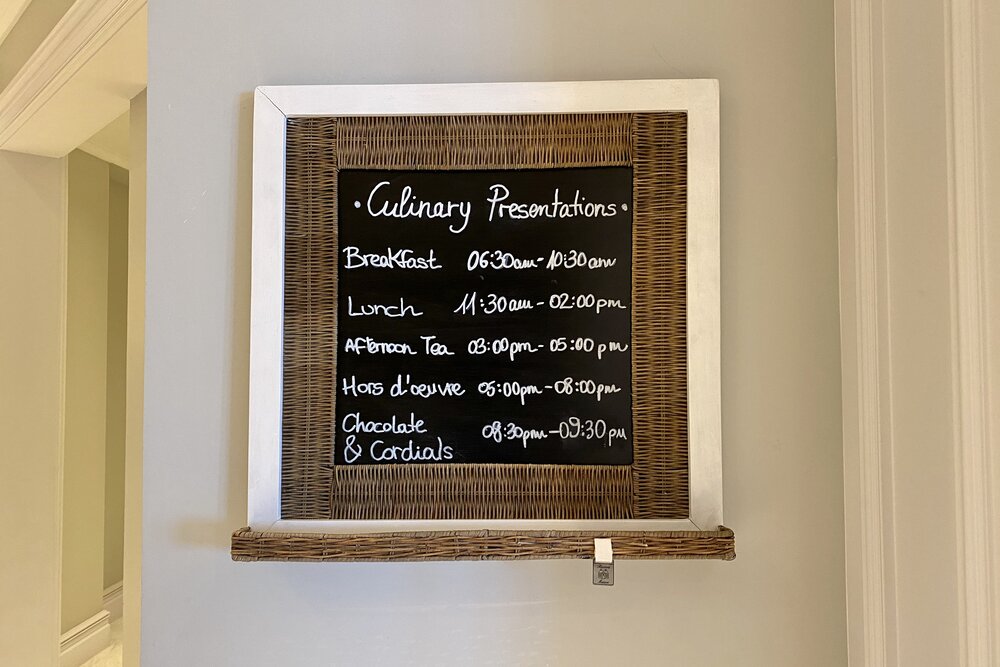 • Culinary Presentations •
Breakfast 06:30am - 10:30am
Lunch 11:30am - 02:00pm
Afternoon Tea 03:00pm - 05:00pm
Hors d'oeuvre 06:00pm - 08:00pm
Chocolate 08:30pm - 09:30pm
& Cordials